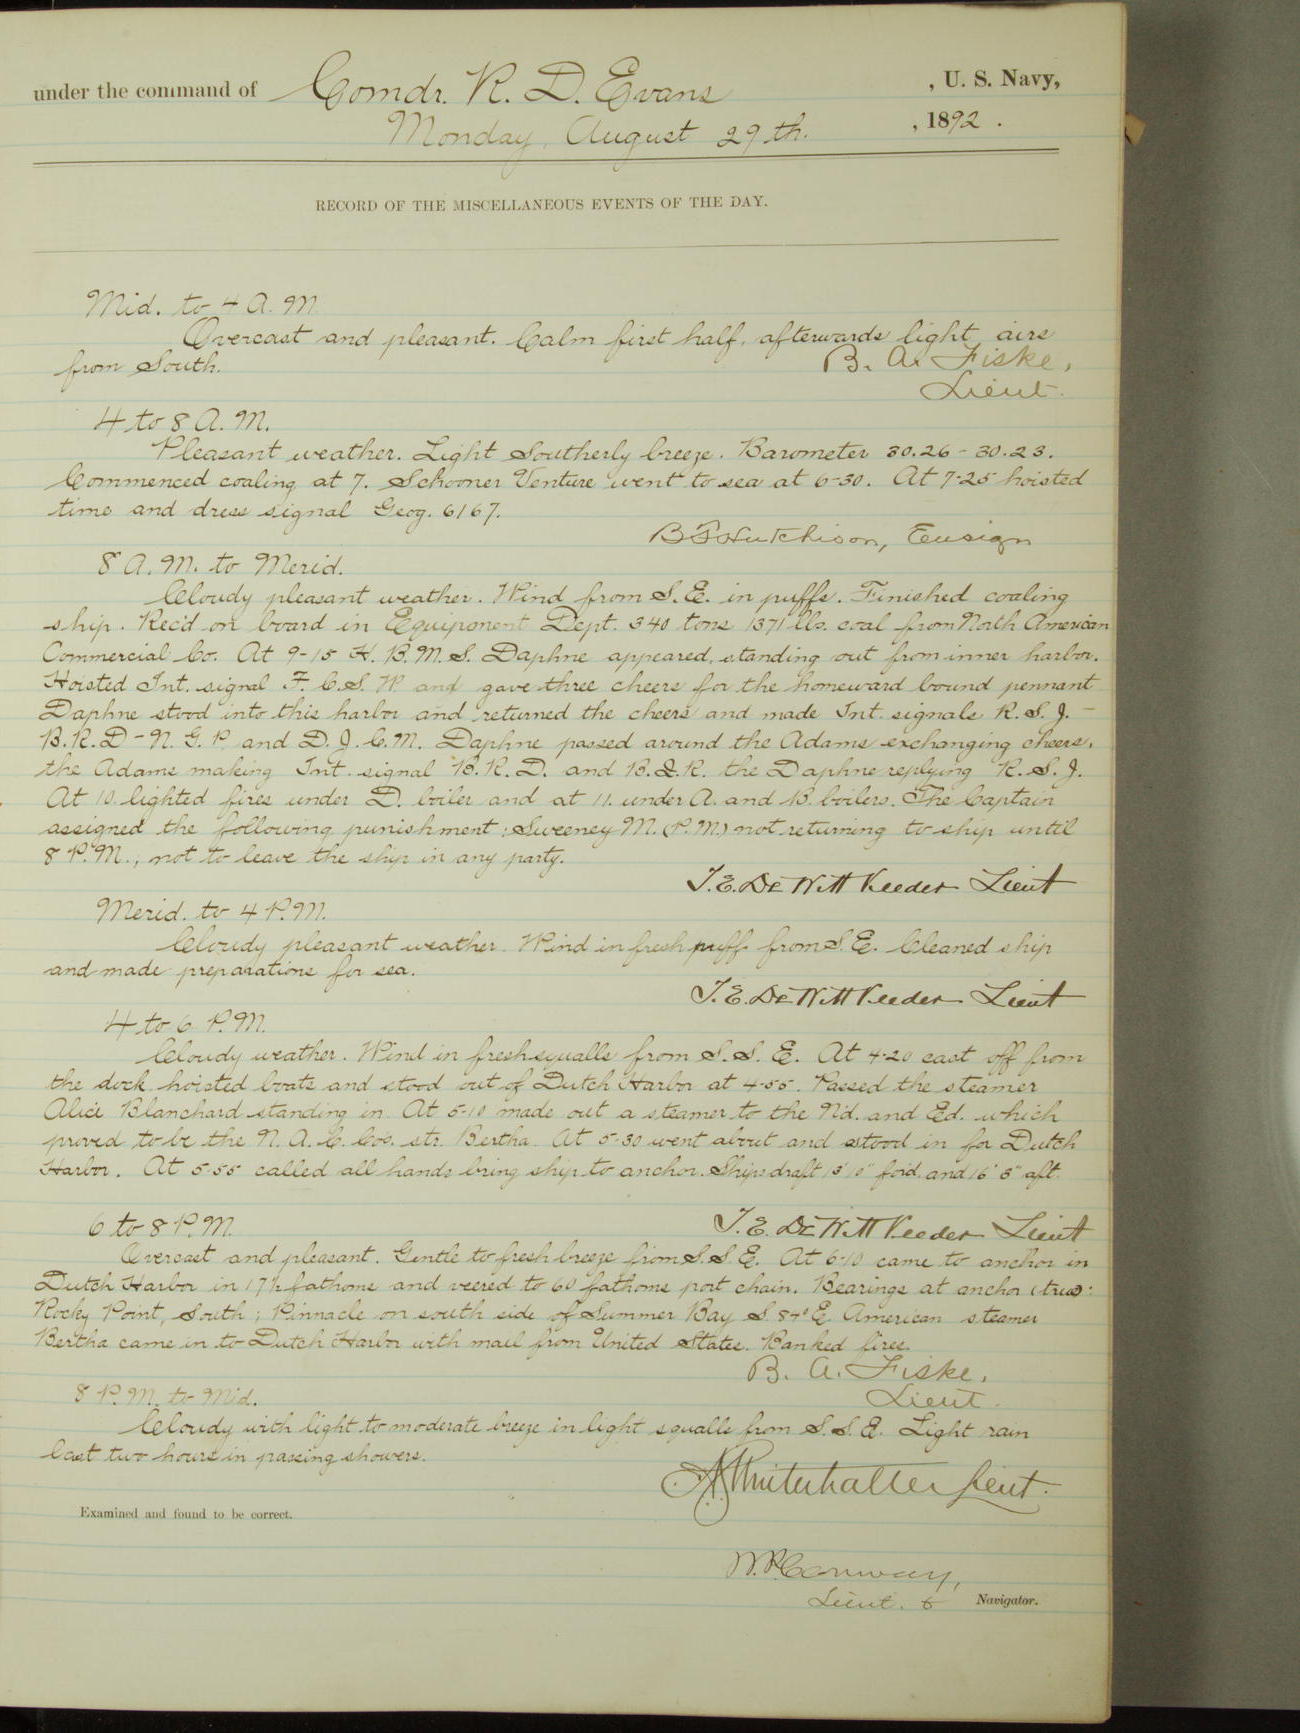 under the command of Comdr. R. D. Evans, U. S. Navy,
Monday, August 29th. , 1892.
RECORD OF THE MISCELLANEOUS EVENTS OF THE DAY.
Mid. to 4 A. M.
Overcast and pleasant. Calm first half, afterwards light airs
from South.
B. A. Fiske,
Lieut.
4 to 8 A. M.
Pleasant weather. Light Southerly breeze. Barometer 30.26 - 30.23.
Commenced coaling at 7. Schooner Venture went to sea at 6-30. At 7-25 hoisted
time and dress signal Geog. 6167.
B F Hutchison, Ensign
8 A. M. to Merid.
Cloudy pleasant weather. Wind from S. E. in puffs. Finished coaling
ship. Rec'd on board in Equipment Dept. 340 tons 1371 lbs. coal from North American
Commercial Co. At 9-15 H. B. M. S. Daphne appeared, standing out from inner harbor.
Hoisted Int. signal F. C. S. W and gave three cheers for the homeward bound pennant
Daphne stood into this harbor and returned the cheers and made Int. signals R. S. J. -
B. R. D - N. G. P. and D. J. C. M. Daphne passed around the Adams exchanging cheers,
the Adams making Int. signal B. R. D. and B. & R. the Daphne replying R. S. J.
At 10 lighted fires under D. boiler and at 11. under A. and B. boilers. The Captain
assigned the following punishment; Sweeney M. (P. M.) not returning to ship until
8 P. M., not to leave the ship in any party.
T. E. DeWitt Veeder Lieut
Merid. to 4 P. M.
Cloudy pleasant weather. Wind in fresh puffs from S. E. Cleaned ship
and made preparations for sea.
T. E. DeWitt Veeder Lieut
4 to 6 P. M.
Cloudy weather. Wind in fresh squalls from S. S. E. At 4-20 cast off from
the dock hoisted boats and stood out of Dutch Harbor at 4-55. Passed the steamer
Alice Blanchard standing in. At 5-10 made out a steamer to the N'd. and Ed. which
proved to be the N. A. C. Cos. str. Bertha. At 5-30 went about and stood in for Dutch
Harbor. At 5-55 called all hands bring ship to anchor. Ships draft 13' 10" for'd. and 16' 8" aft.
T. E. DeWitt Veeder Lieut
6 to 8 P. M.
Overcast and pleasant. Gentle to fresh breeze from S. S. E. At 6-10 came to anchor in
Dutch Harbor in 17½ fathoms and veered to 60 fathoms port chain. Bearings at anchor (true):
Rocky Point, South; Pinnacle on south side of Summer Bay S. 84° E. American steamer
Bertha came in to Dutch Harbor with mail from United States. Banked fires.
B. A. Fiske,
Lieut.
8 P. M. to Mid.
Cloudy with light to moderate breeze in light squalls from S. S. E. Light rain
last two hours in passing showers.
A G Winterhalter Lieut.
Examined and found to be correct.
W. P. Conway,
Lieut. & Navigator.